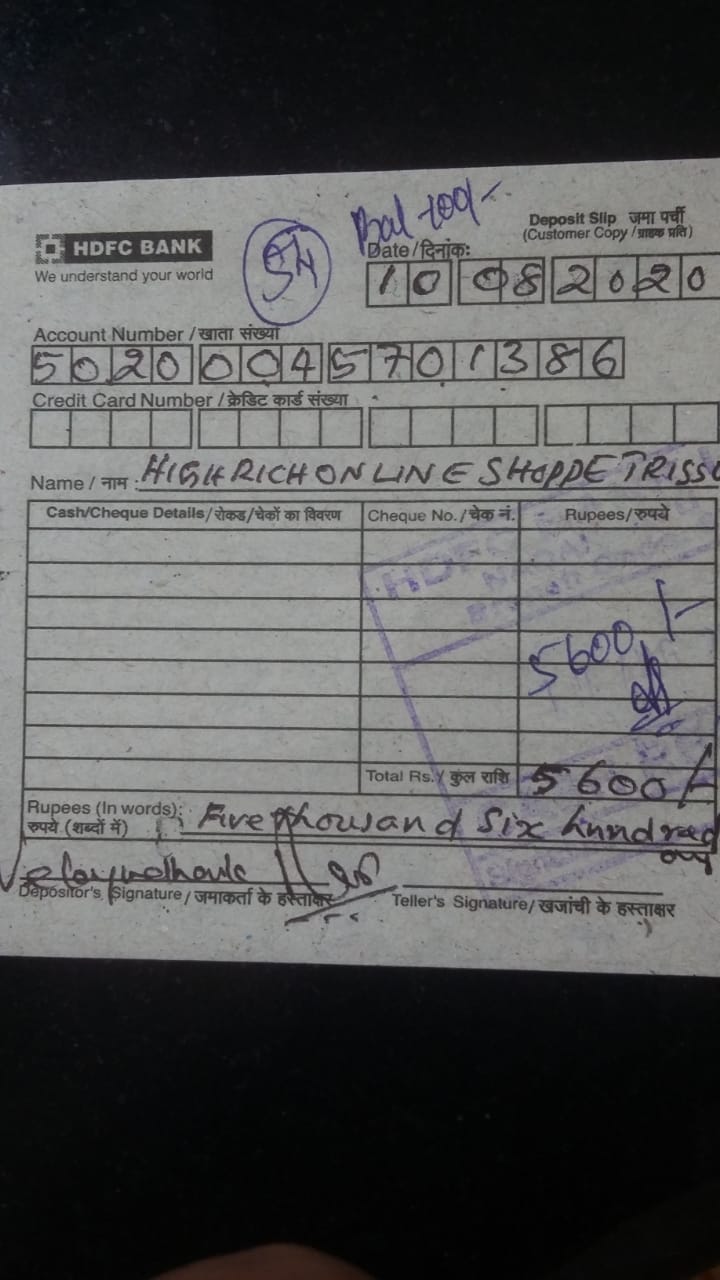 Bal 400/-
HDFC BANK
We understand your world
Deposit Slip जमा पर्ची
(Customer Copy / ग्राहक प्रति)
Date / दिनांक:
10 08 2020
Account Number / खाता संख्या
50200045701386
Credit Card Number / क्रेडिट कार्ड संख्या
Name / नाम : HIGHRICH ONLINE SHOPPE TRISS
Cash/Cheque Details / रोकड़/चेकों का विवरण Cheque No. / चेक नं. Rupees/रुपये
HDFC
5600/-
Total Rs. / कुल राशि 5600/-
Rupees (In words): Five thousand Six hundred
रुपये (शब्दों में) only
Depositor's Signature / जमाकर्ता के हस्ताक्षर Teller's Signature/ खजांची के हस्ताक्षर